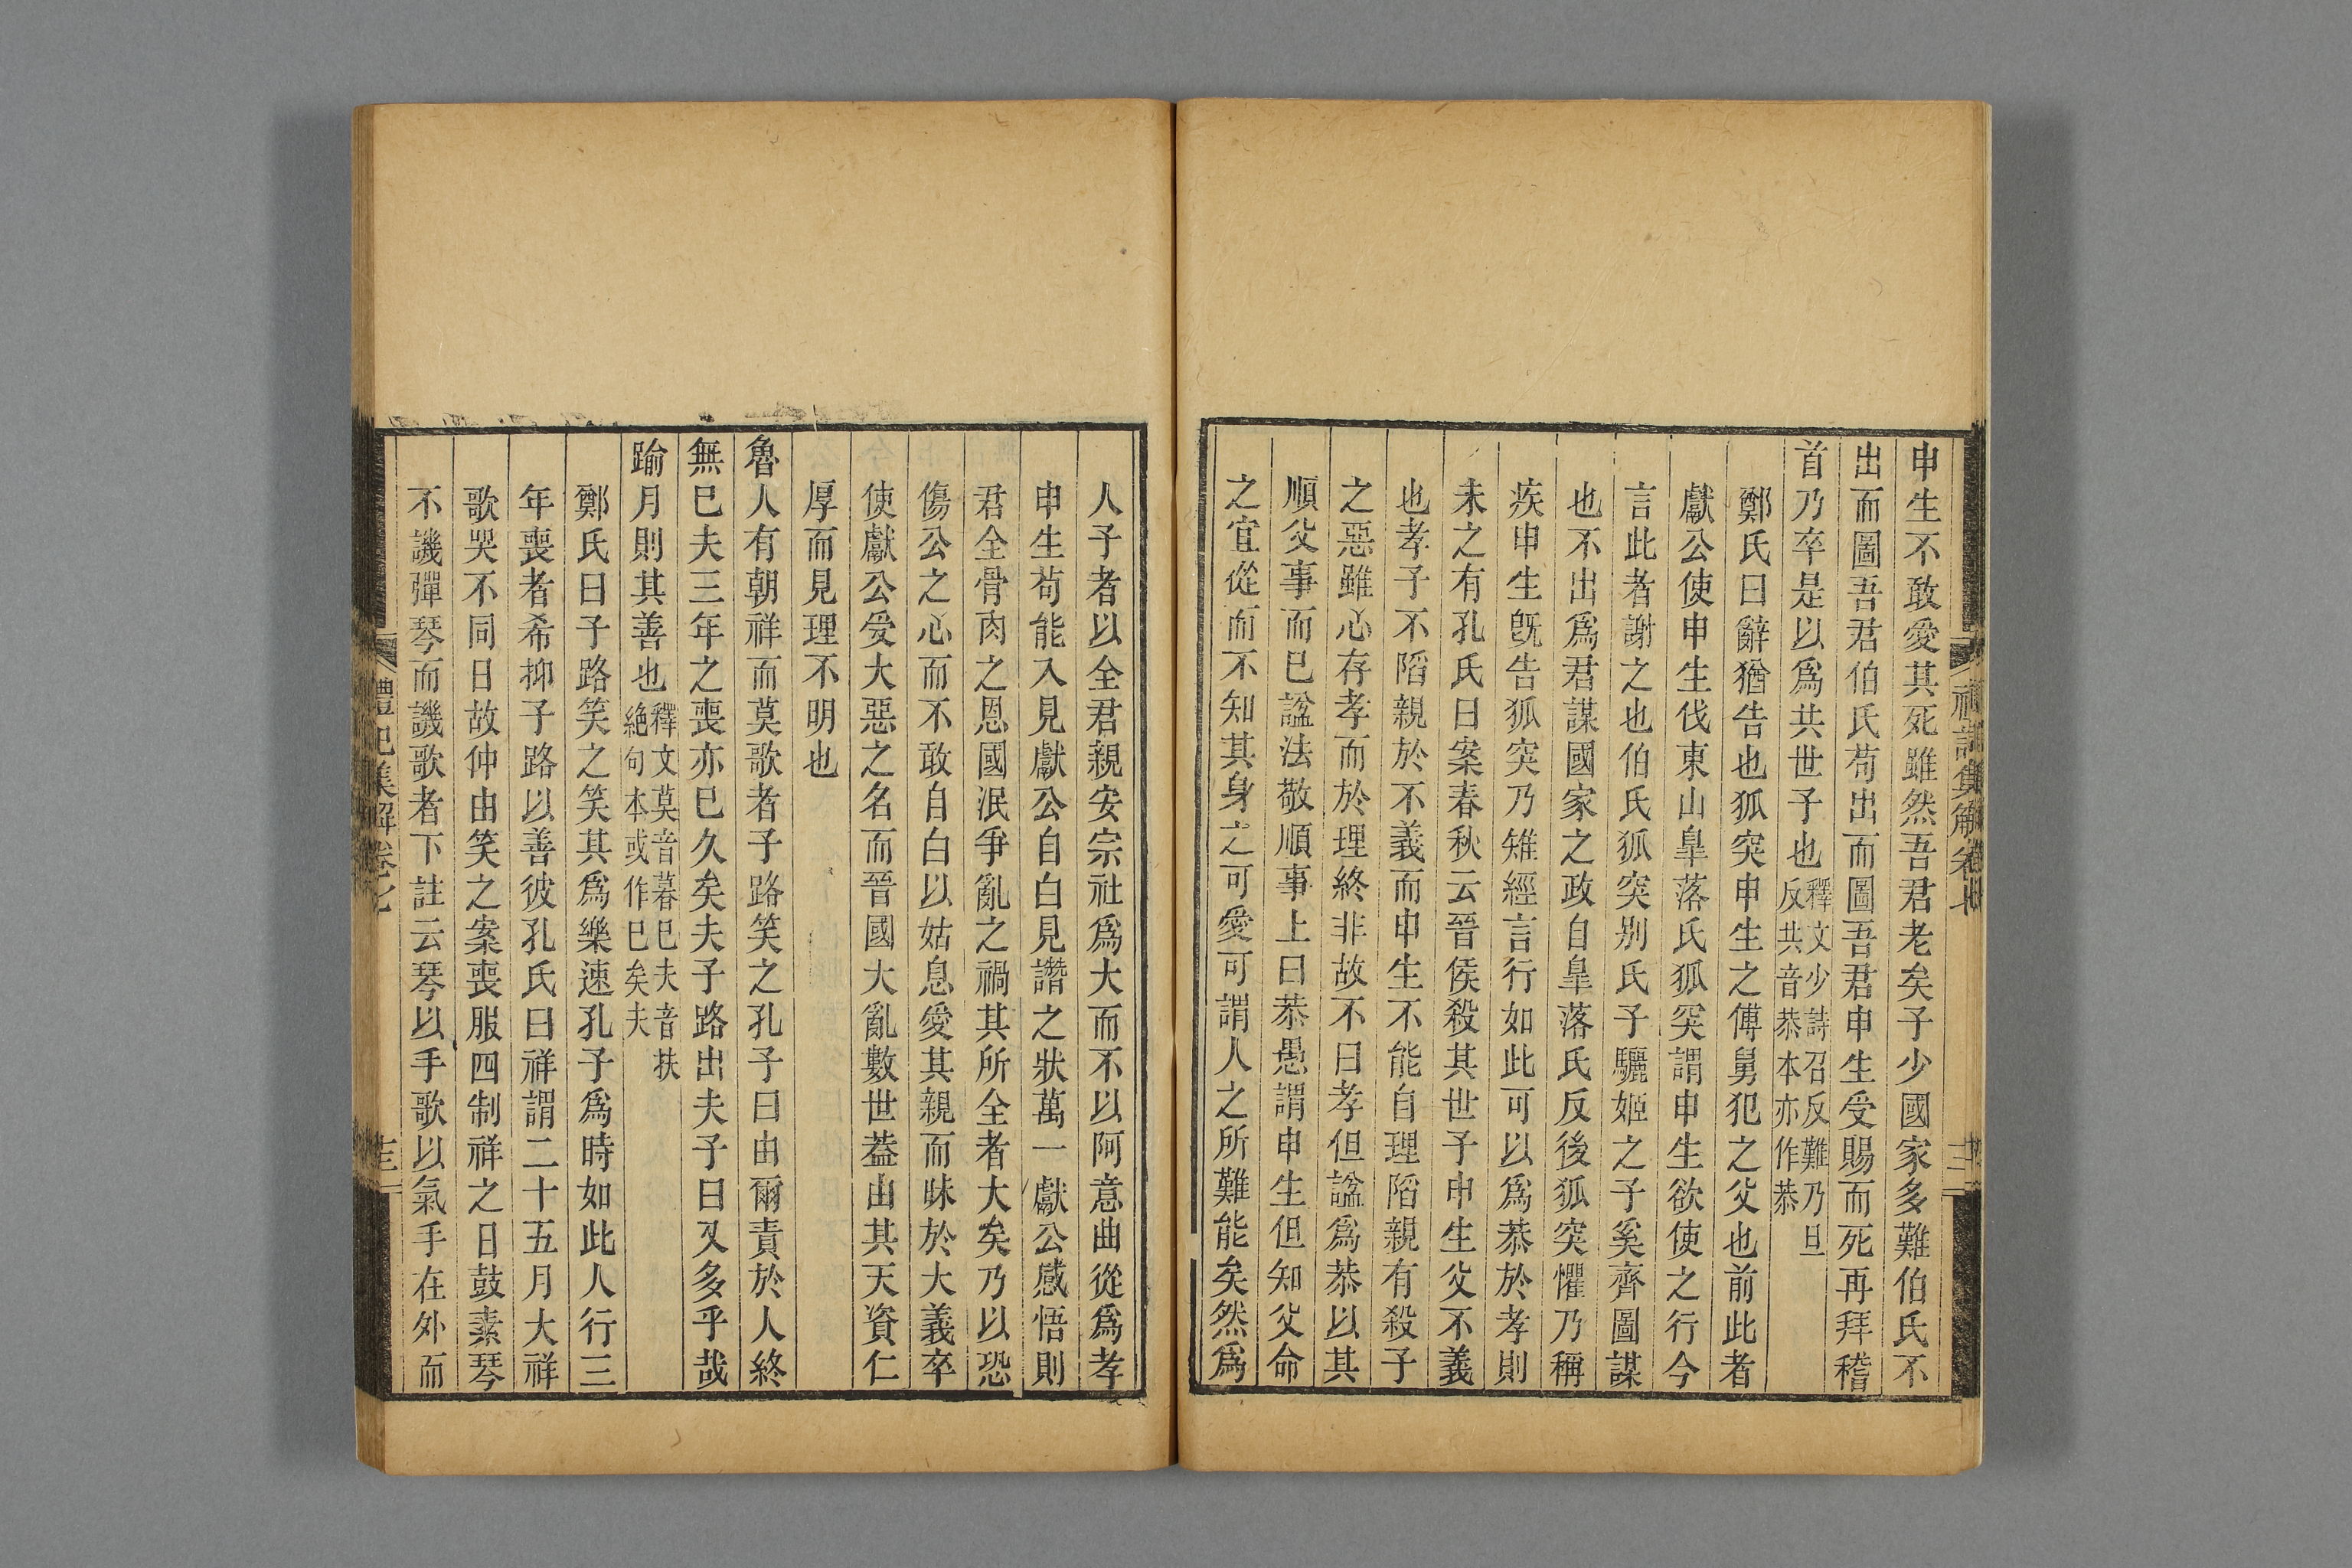 申生不敢愛其死雖然吾君老矣子少國家多難伯氏不
出而圖吾君伯氏苟出而圖吾君申生受賜而死再拜稽
首乃卒是以爲共世子也
釋文少詩召反難乃旦
反共音恭本亦作恭
鄭氏曰辭猶告也狐突申生之傅舅犯之父也前此者
獻公使申生伐東山臯落氏狐突謂申生欲使之行今
言此者謝之也伯氏狐突別氏子驪姬之子奚齊圖謀
也不出爲君謀國家之政自臯落氏反後狐突懼乃稱
疾申生旣告狐突乃雉經言行如此可以爲恭於孝則
未之有孔氏曰案春秋云晉侯殺其世子申生父不義
也孝子不陷親於不義而申生不能自理陷親有殺子
之惡雖心存孝而於理終非故不曰孝但諡爲恭以其
順父事而已諡法敬順事上曰恭愚謂申生但知父命
之宜從而不知其身之可愛可謂人之所難能矣然爲
人子者以全君親安宗社爲大而不以阿意曲從爲孝
申生苟能入見獻公自白見譖之狀萬一獻公感悟則
君全骨肉之恩國泯爭亂之禍其所全者大矣乃以恐
傷公之心而不敢自白以姑息愛其親而昧於大義卒
使獻公受大惡之名而晉國大亂數世葢由其天資仁
厚而見理不明也
魯人有朝祥而莫歌者子路笑之孔子曰由爾責於人終
無已夫三年之喪亦已久矣夫子路出夫子曰又多乎哉
踰月則其善也
釋文莫音暮已夫音扶
絕句本或作已矣夫
鄭氏曰子路笑之笑其爲樂速孔子爲時如此人行三
年喪者希抑子路以善彼孔氏曰祥謂二十五月大祥
歌哭不同日故仲由笑之案喪服四制祥之日鼓素琴
不譏彈琴而譏歌者下註云琴以手歌以氣手在外而
禮記集解卷七